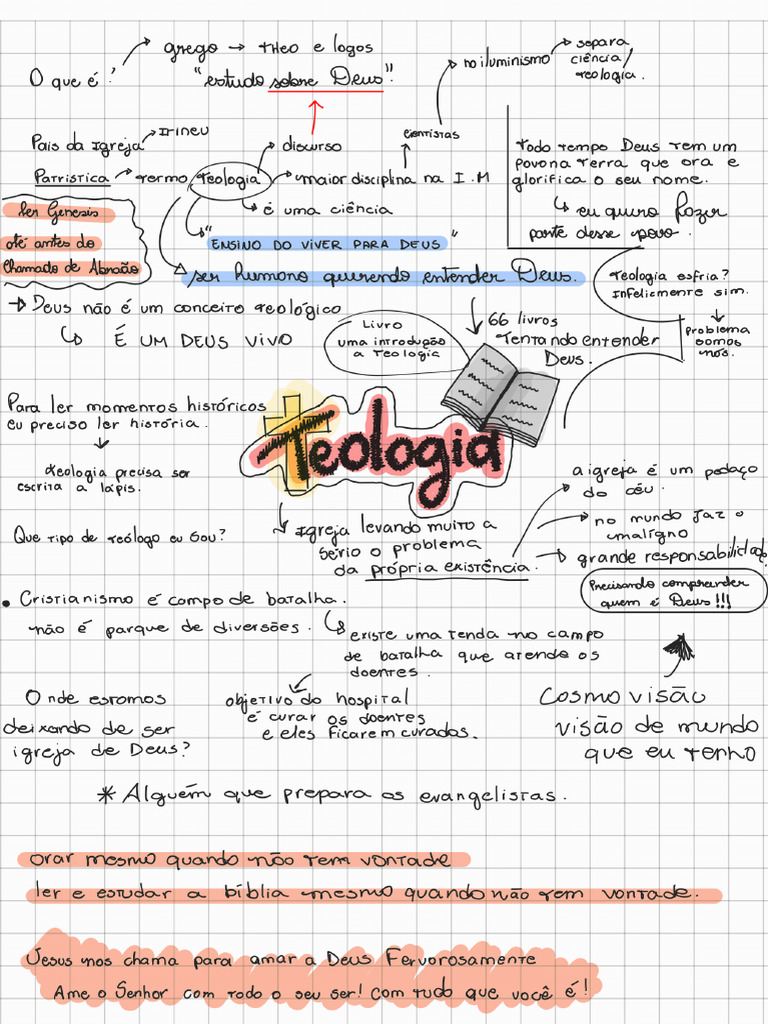 O que é?
grego → Theo e logos
"estudo sobre Deus".
no iluminismo
separa
ciência/
teologia.
Pais da Igreja
Irineu
Patrística → termo
Teologia
discurso
cientistas
maior disciplina na I.M
é uma ciência
"ENSINO DO VIVER PARA DEUS"
ser humano querendo entender Deus.
Todo tempo Deus tem um
povo na terra que ora e
glorifica o seu nome.
eu quero fazer
parte desse povo.
Ler Genesis
até antes do
chamado de Abraão
→ Deus não é um conceito teológico
É UM DEUS VIVO
Teologia esfria?
Infelicmente sim.
problema
somos
nós.
Livro
uma introdução
a Teologia
66 livros
Tentando entender
Deus.
Para ler momentos históricos
eu preciso ler história.
teologia precisa ser
escrita a lápis.
Teologia
Que tipo de teólogo eu sou?
Igreja levando muito a
sério o problema
da própria existência.
a igreja é um pedaço
do céu.
no mundo jaz o
umaligno
grande responsabilidade
Precisando comprender
quem é Deus!!!
• Cristianismo é campo de batalha.
não é parque de diversões.
existe uma tenda no campo
de batalha que atende os
doentes.
Onde estamos
deixando de ser
igreja de Deus?
objetivo do hospital
é curar os doentes
e eles ficarem curados.
Cosmo visão
visão de mundo
que eu tenho
* Alguém que prepara os evangelistas.
orar mesmo quando não tem vontade
ler e estudar a bíblia mesmo quando não tem vontade.
Jesus nos chama para amar a Deus Fervorosamente
Ame o Senhor com todo o seu ser! Com tudo que você é!